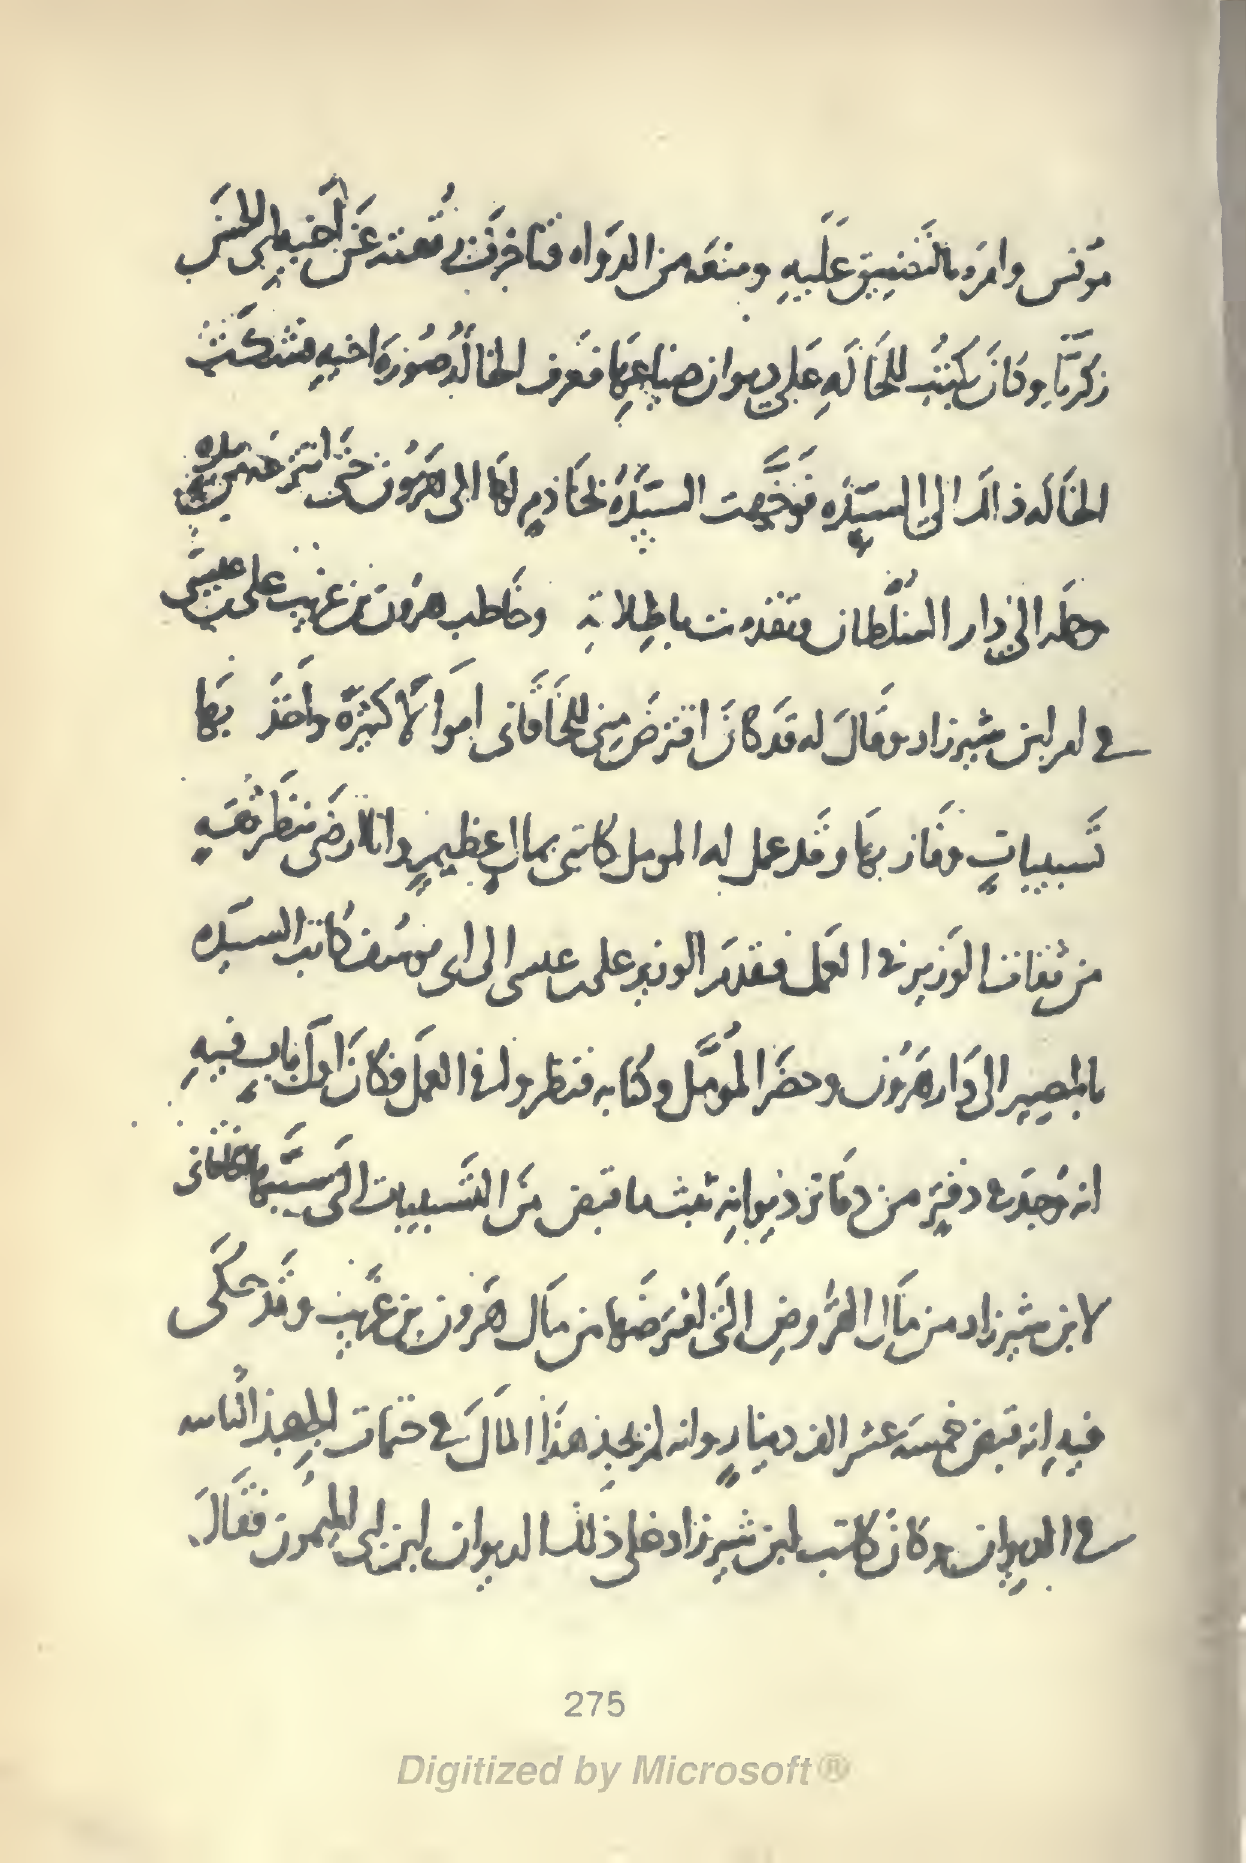 مونس وامره بالتضييق عليه ومنعه من الدواه فتاخرت رقعته عن أخيه ابي الحسن
زكريا وكان يكتب للخاله على ديوان ضياعها فعرف الخاله صوره اخيه فشكت
الخاله ذلك الى السيده فوجهت السيده بخادم لها الى هرون حتى انتزعه من يده
وحمله الى دار السلطان وتقدمت باطلاقه وخاطب هرون بن غريب على بن عيسى
في امر ابن شيرزاد وقال له قد كان اقترض مني للخاقاني اموالا كثيرة واخذ بها
تسبيبات وفاز بها وقد عمل له المومل كاتبي بمال عظيم وانا ارضى بنظر ثقه
من ثقات الوزير في العمل فتقدم الوزير على بن عيسى الى ابي يوسف كاتب السيده
بالمصير الى دار هرون وحضر المومل وكتابه فنظروا في العمل فكان اول باب فيه
انه وجد في دفتر من دفاتر ديوانه ثبت ما قبض من التسبيبات التي سببها الخاقاني
لابن شيرزاد من مال القروض التي اقترضها من مال هرون بن غريب وقد حكى
فيه انه قبض خمسه عشر الف دينار وانه لم يجد هذا المال في ختمات الجهبذ الثابته
في الديوان وكان كاتب ابن شيرزاد على ذلك الديوان ابن ابي الميمون فقال
275
Digitized by Microsoft®